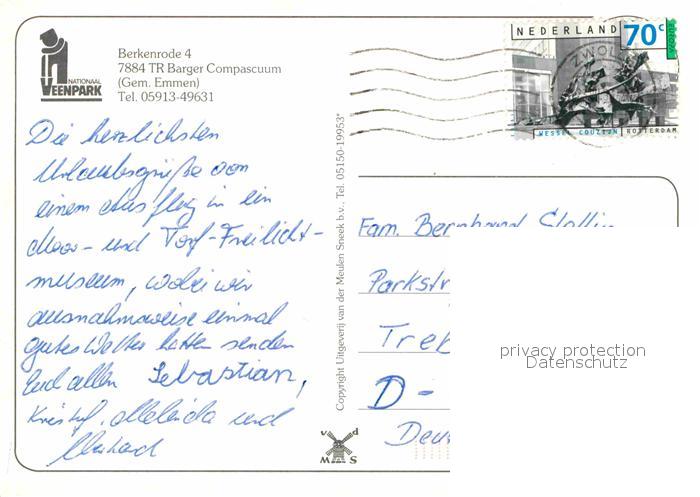 NATIONAAL
VEENPARK
Berkenrode 4
7884 TR Barger Compascuum
(Gem. Emmen)
Tel. 05913-49631
Die herzlichsten
Urlaubsgrüße von
einem Ausflug in ein
Moor- und Torf-Freilicht-
museum, wobei wir
ausnahmsweise einmal
gutes Wetter hatten senden
Euch allen Sebastian,
und
Eberhard
Copyright Uitgeverij van der Meulen Sneek b.v., Tel. 05150-19953*
v d
M S
NEDERLAND
70c
ZWOL
WESSEL COUZIJN ROTTERDAM
Fam. Bernhard
Parkstr
Treb
D-
Deu
privacy protection
Datenschutz